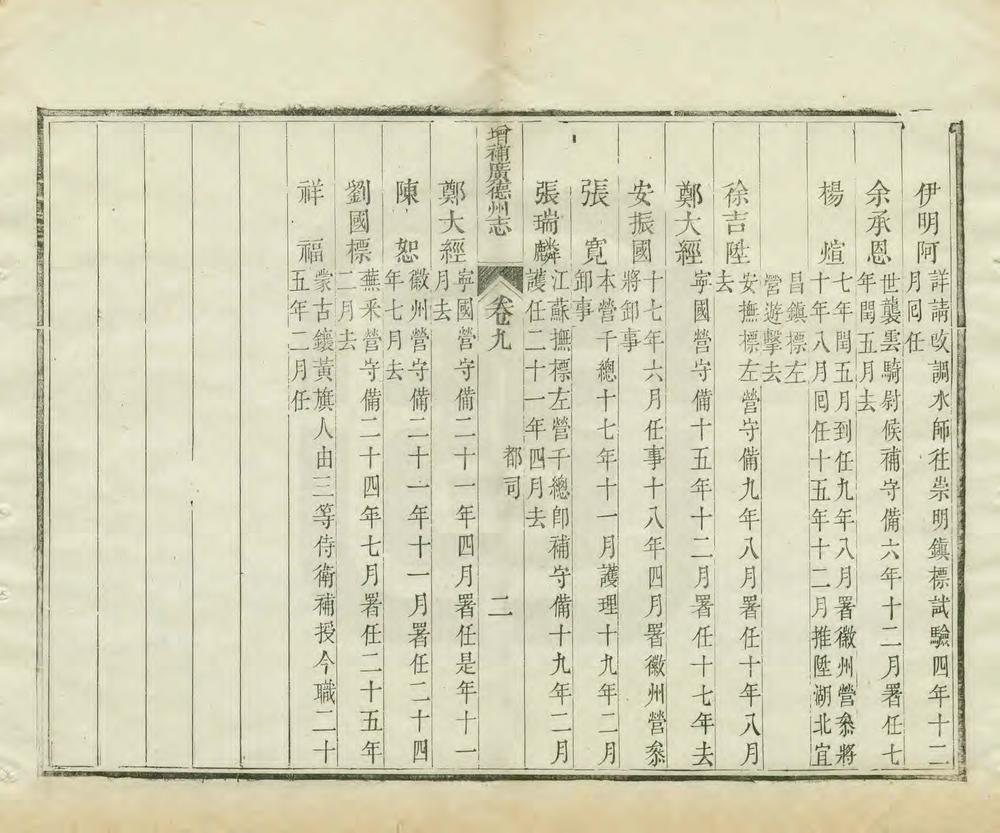 伊明阿
詳請改調水師往崇明鎮標試驗四年十二
月囘任
余承恩
世襲雲騎尉候補守備六年十二月署任七
年閏五月去
楊煊
七年閏五月到任九年八月署徽州營叅將
十年八月囘任十五年十二月推陞湖北宜
昌鎮標左
營遊擊去
徐吉陞
安撫標左營守備九年八月署任十年八月
去
鄭大經
寧國營守備十五年十二月署任十七年去
安振國
十七年六月任事十八年四月署徽州營叅
將卸事
張寬
本營千總十七年十一月護理十九年二月
卸事
張瑞麟
江蘇撫標左營千總卽補守備十九年二月
護任二十一年四月去
增補廣德州志
卷九
都司
二
鄭大經
寧國營守備二十一年四月署任是年十一
月去
陳恕
徽州營守備二十一年十一月署任二十四
年七月去
劉國標
蕪采營守備二十四年七月署任二十五年
二月去
祥福
蒙古鑲黃旗人由三等侍衛補授今職二十
五年二月任